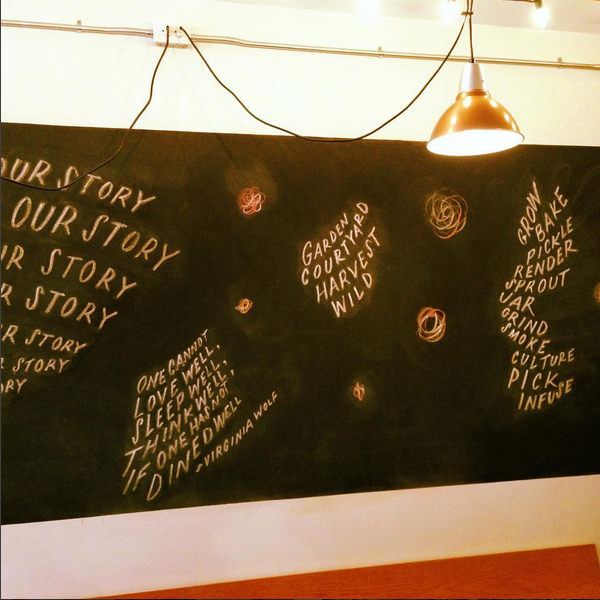 OUR STORY
OUR STORY
UR STORY
R STORY
R STORY
STORY
ORY
ONE CANNOT
LOVE WELL,
SLEEP WELL,
THINK WELL,
IF ONE HAS NOT
DINED WELL
-VIRGINIA WOLF
GARDEN
COURTYARD
HARVEST
WILD
GROW
BAKE
PICKLE
RENDER
SPROUT
JAR
GRIND
SMOKE
CULTURE
PICK
INFUSE